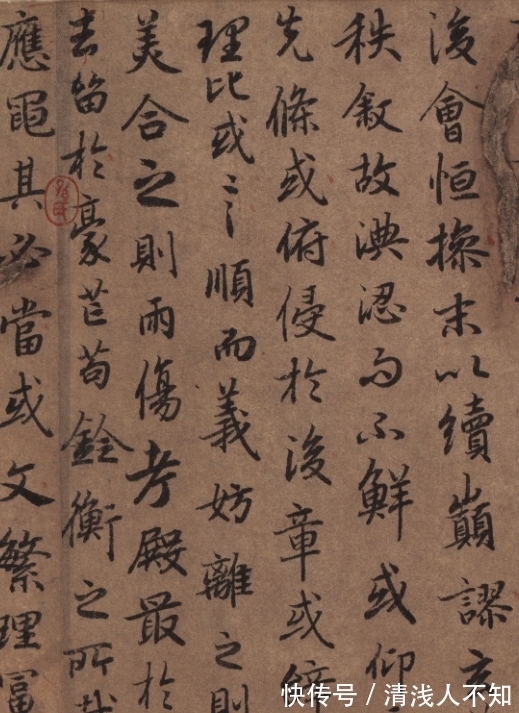 後會恒操末以續巔謬玄
秩敘故淟涊而不鮮或仰
先條或俯侵於後章或
理比或言順而義妨離之則
美合之則兩傷考殿最於
去留於豪芒苟銓衡之所裁
應繩其必當或文繁理富
快传号 / 清浅人不知